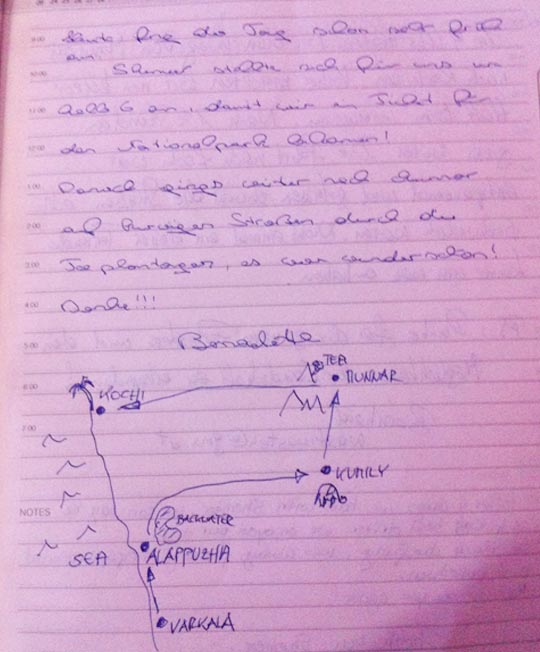 9:00
Heute fing der Tag schon sehr früh
an.
10:00
Shameer stellte sich für uns um
11:00
halb 6 an, damit wir ein Ticket für
12:00
den Nationalpark bekamen!
1:00
Danach ging es weiter nach Munnar
2:00
auf kurvigen Straßen durch die
3:00
Teeplantagen, es war wunderschön!
4:00
Danke!!!
5:00
6:00
TEA
MUNNAR
KOCHI
7:00
KUMILY
NOTES
BACKWATER
SEA
ALAPPUZHA
VARKALA